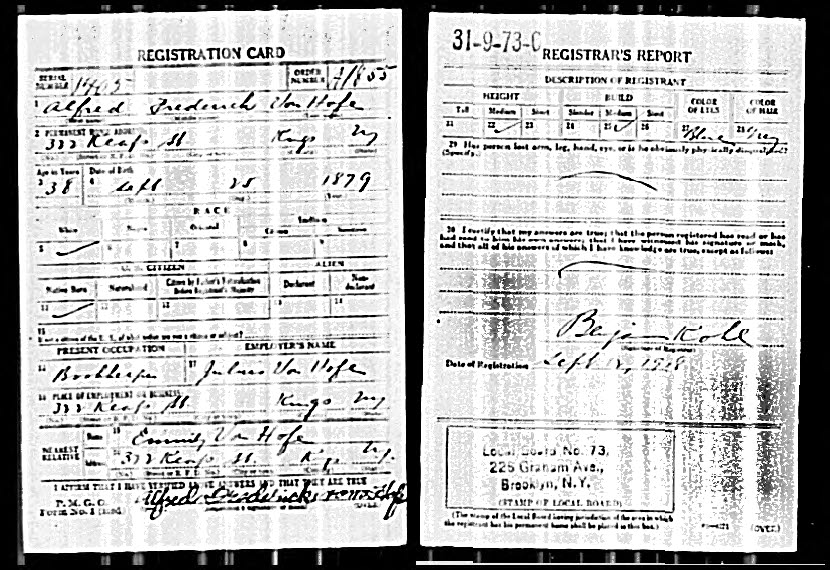 REGISTRATION CARD
SERIAL NUMBER 1405
ORDER NUMBER
1 Alfred Frederick Von Hofe
2 PERMANENT HOME ADDRESS
333 Keap St Kings NY
Age in Years Date of Birth
3 38 4 Sept 25 1879
RACE
White Negro Oriental Indian
Citizen Noncitizen
5 6 7 8 9
U. S. CITIZEN ALIEN
Native Born Naturalized Citizen by Father's Naturalization Before Registrant's Majority Declarant Non-declarant
10 11 12 13 14
15
If not a citizen of the U. S., of what nation are you a citizen or subject?
PRESENT OCCUPATION EMPLOYER'S NAME
16 Bookkeeper 17 Julius Von Hofe
18 PLACE OF EMPLOYMENT OR BUSINESS
333 Keap St Kings NY
NEAREST RELATIVE
Name 19 Von Hofe
Address 20 333 Keap St. NY.
I AFFIRM THAT I HAVE VERIFIED ABOVE ANSWERS AND THAT THEY ARE TRUE
P. M. G. O.
Form No. 1 (Red) Alfred Frederick von Hofe
(OVER)
31-9-73-C
REGISTRAR'S REPORT
DESCRIPTION OF REGISTRANT
HEIGHT BUILD COLOR OF EYES COLOR OF HAIR
Tall Medium Short Slender Medium Stout
21 22 23 24 25 26 27 Blue 28 Grey
29 Has person lost arm, leg, hand, eye, or is he obviously physically disqualified?
(Specify.)
30 I certify that my answers are true; that the person registered has read or has
had read to him his own answers; that I have witnessed his signature or mark,
and that all of his answers of which I have knowledge are true, except as follows:
(Signature of Registrar)
Date of Registration Sept 12, 1918
Local Board No. 73,
226 Graham Ave.,
Brooklyn, N.Y.
(STAMP OF LOCAL BOARD)
(The stamp of the Local Board having jurisdiction of the area in which
the registrant has his permanent home shall be placed in this box.)
(OVER)